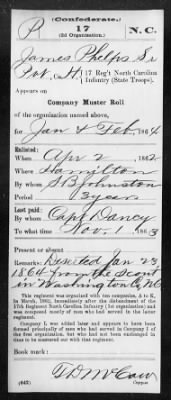 (Confederate.)
P 17 N. C.
(2d Organization.)
James Phelps Sr
Pvt, Co. H, 17 Reg't North Carolina
Infantry (State Troops).
Appears on
Company Muster Roll
of the organization named above,
for Jan & Feb, 1864
Enlisted:
When Apr 2, 1862
Where Hamilton
By whom S B Johnston
Period 3 years
Last paid:
By whom Capt
To what time Nov. 1, 1863
Present or absent
Remarks: Deserted Jan 23
1864 from the Scout
in Washington Co NC
This regiment was organized with ten companies, A to K,
in March, 1862, immediately after the disbandment of the
17th Regiment North Carolina Infantry (1st organization)
and was composed mostly of men who had served in the latter
regiment.
Company L was added later and appears to have been
formed principally of men who had served in Company I of
the first organization, but who had not continued from that
to be mustered out with that regiment.
Book mark:
McCaw
(642) Copyist.